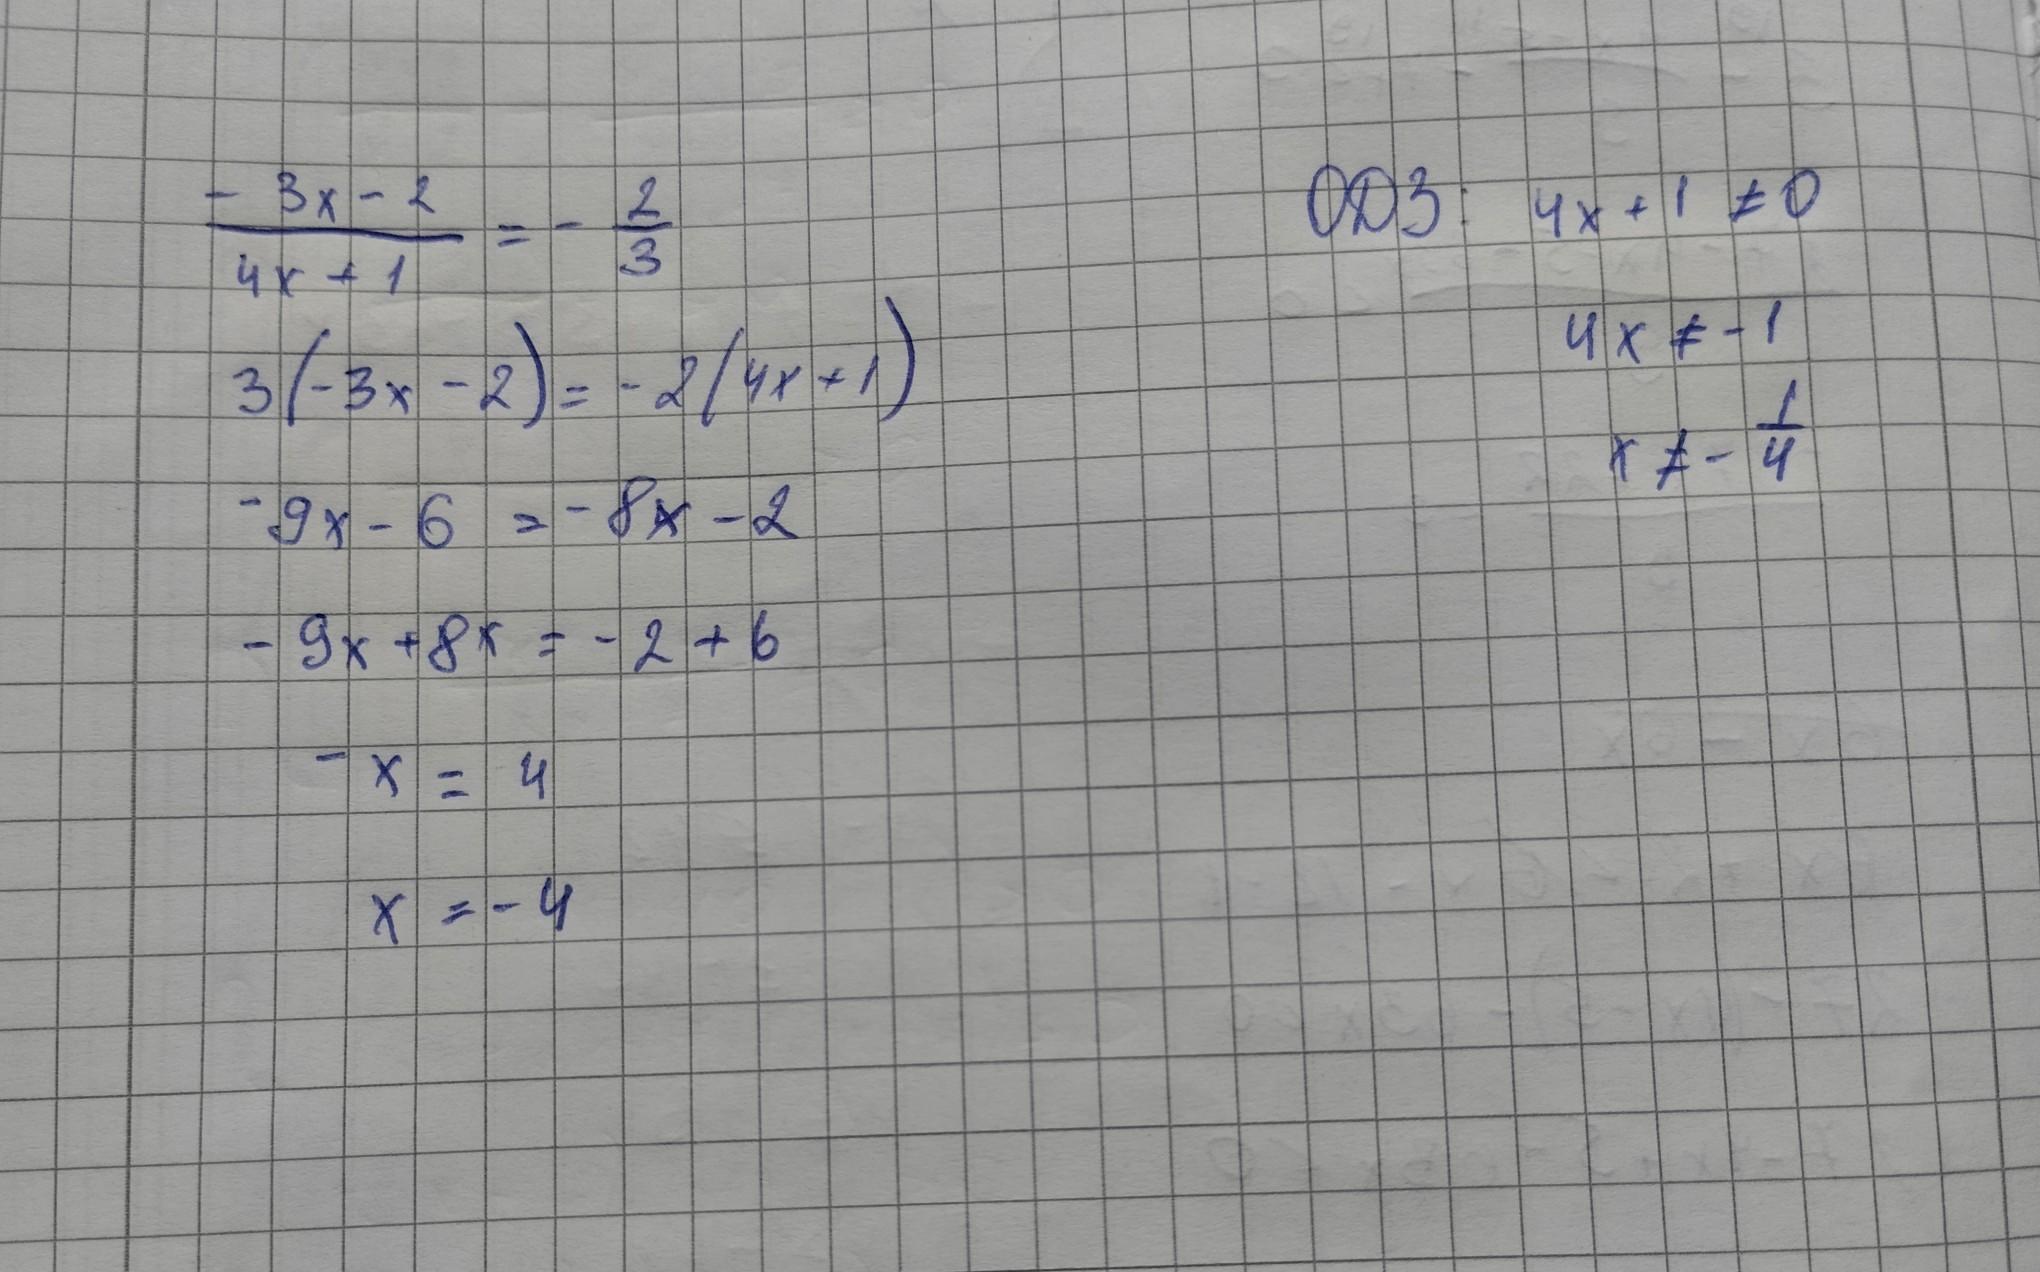 (- 3x - 2) / (4x + 1) = - 2/3
3(-3x - 2) = -2(4x + 1)
-9x - 6 = -8x - 2
-9x + 8x = -2 + 6
-x = 4
x = -4
ОДЗ: 4x + 1 ≠ 0
4x ≠ -1
x ≠ - 1/4